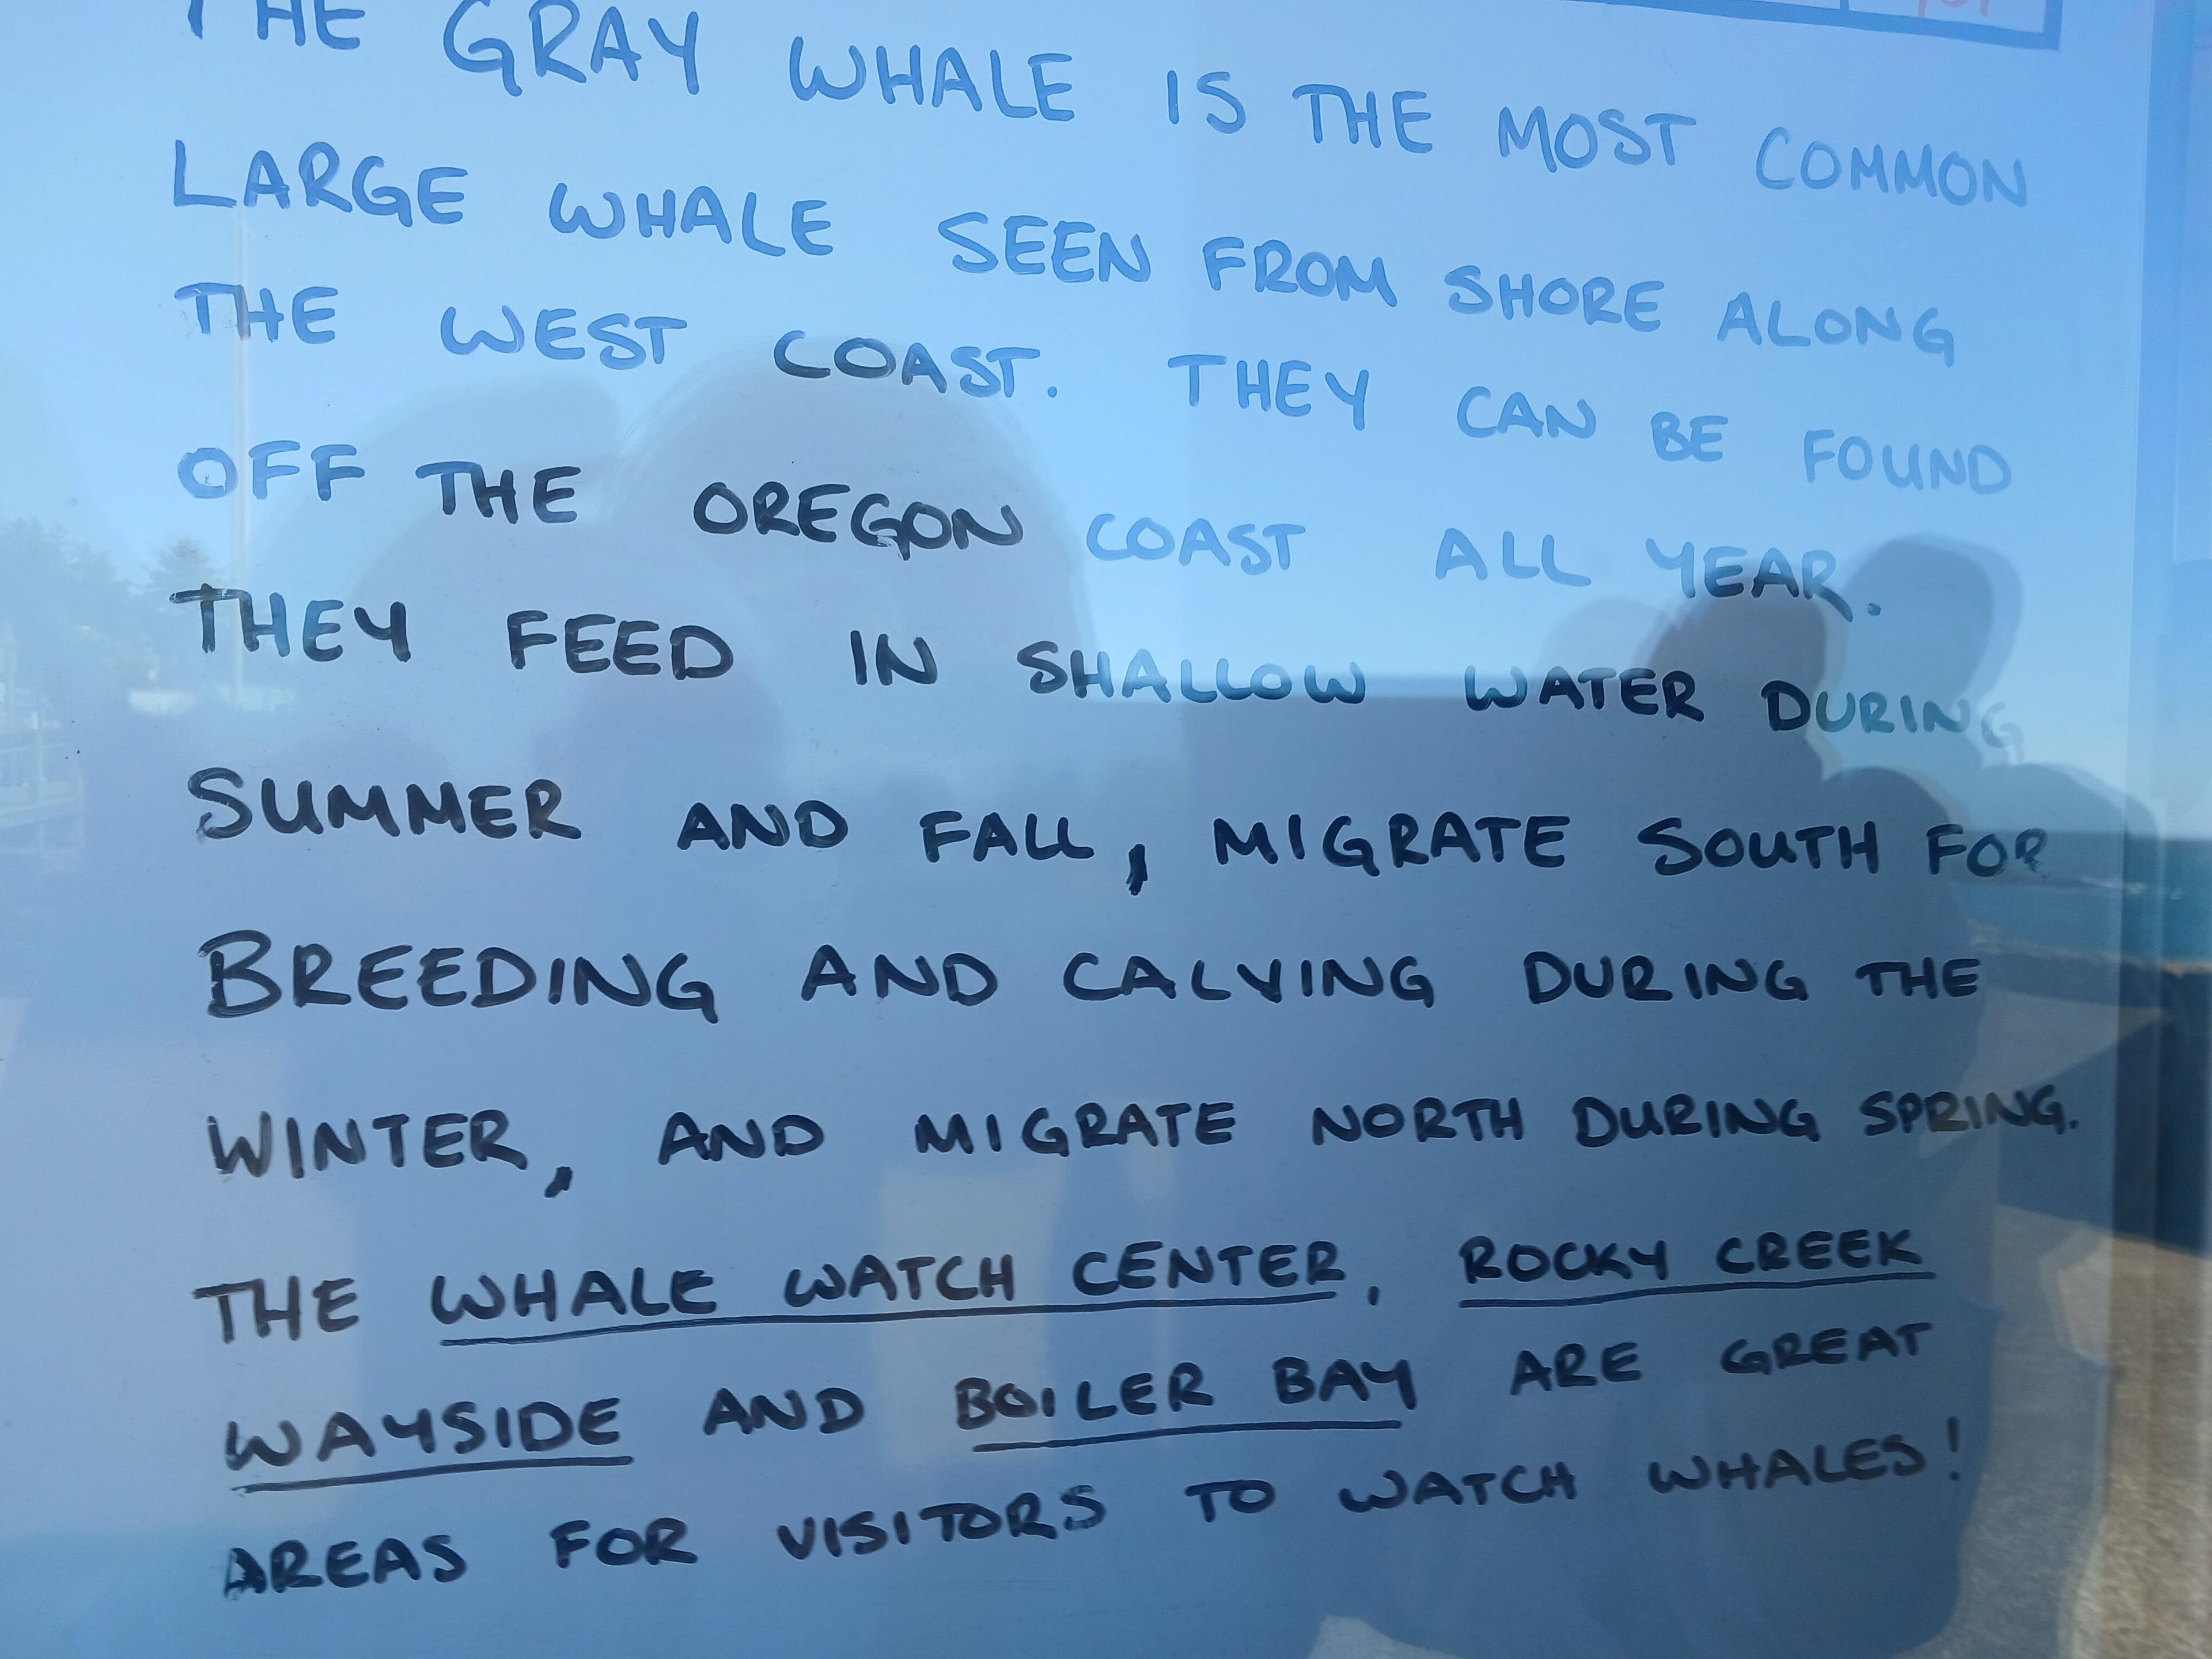 THE GRAY WHALE IS THE MOST COMMON
LARGE WHALE SEEN FROM SHORE ALONG
THE WEST COAST. THEY CAN BE FOUND
OFF THE OREGON COAST ALL YEAR.
THEY FEED IN SHALLOW WATER DURING
SUMMER AND FALL, MIGRATE SOUTH FOR
BREEDING AND CALVING DURING THE
WINTER, AND MIGRATE NORTH DURING SPRING.
THE WHALE WATCH CENTER, ROCKY CREEK
WAYSIDE AND BOILER BAY ARE GREAT
AREAS FOR VISITORS TO WATCH WHALES!